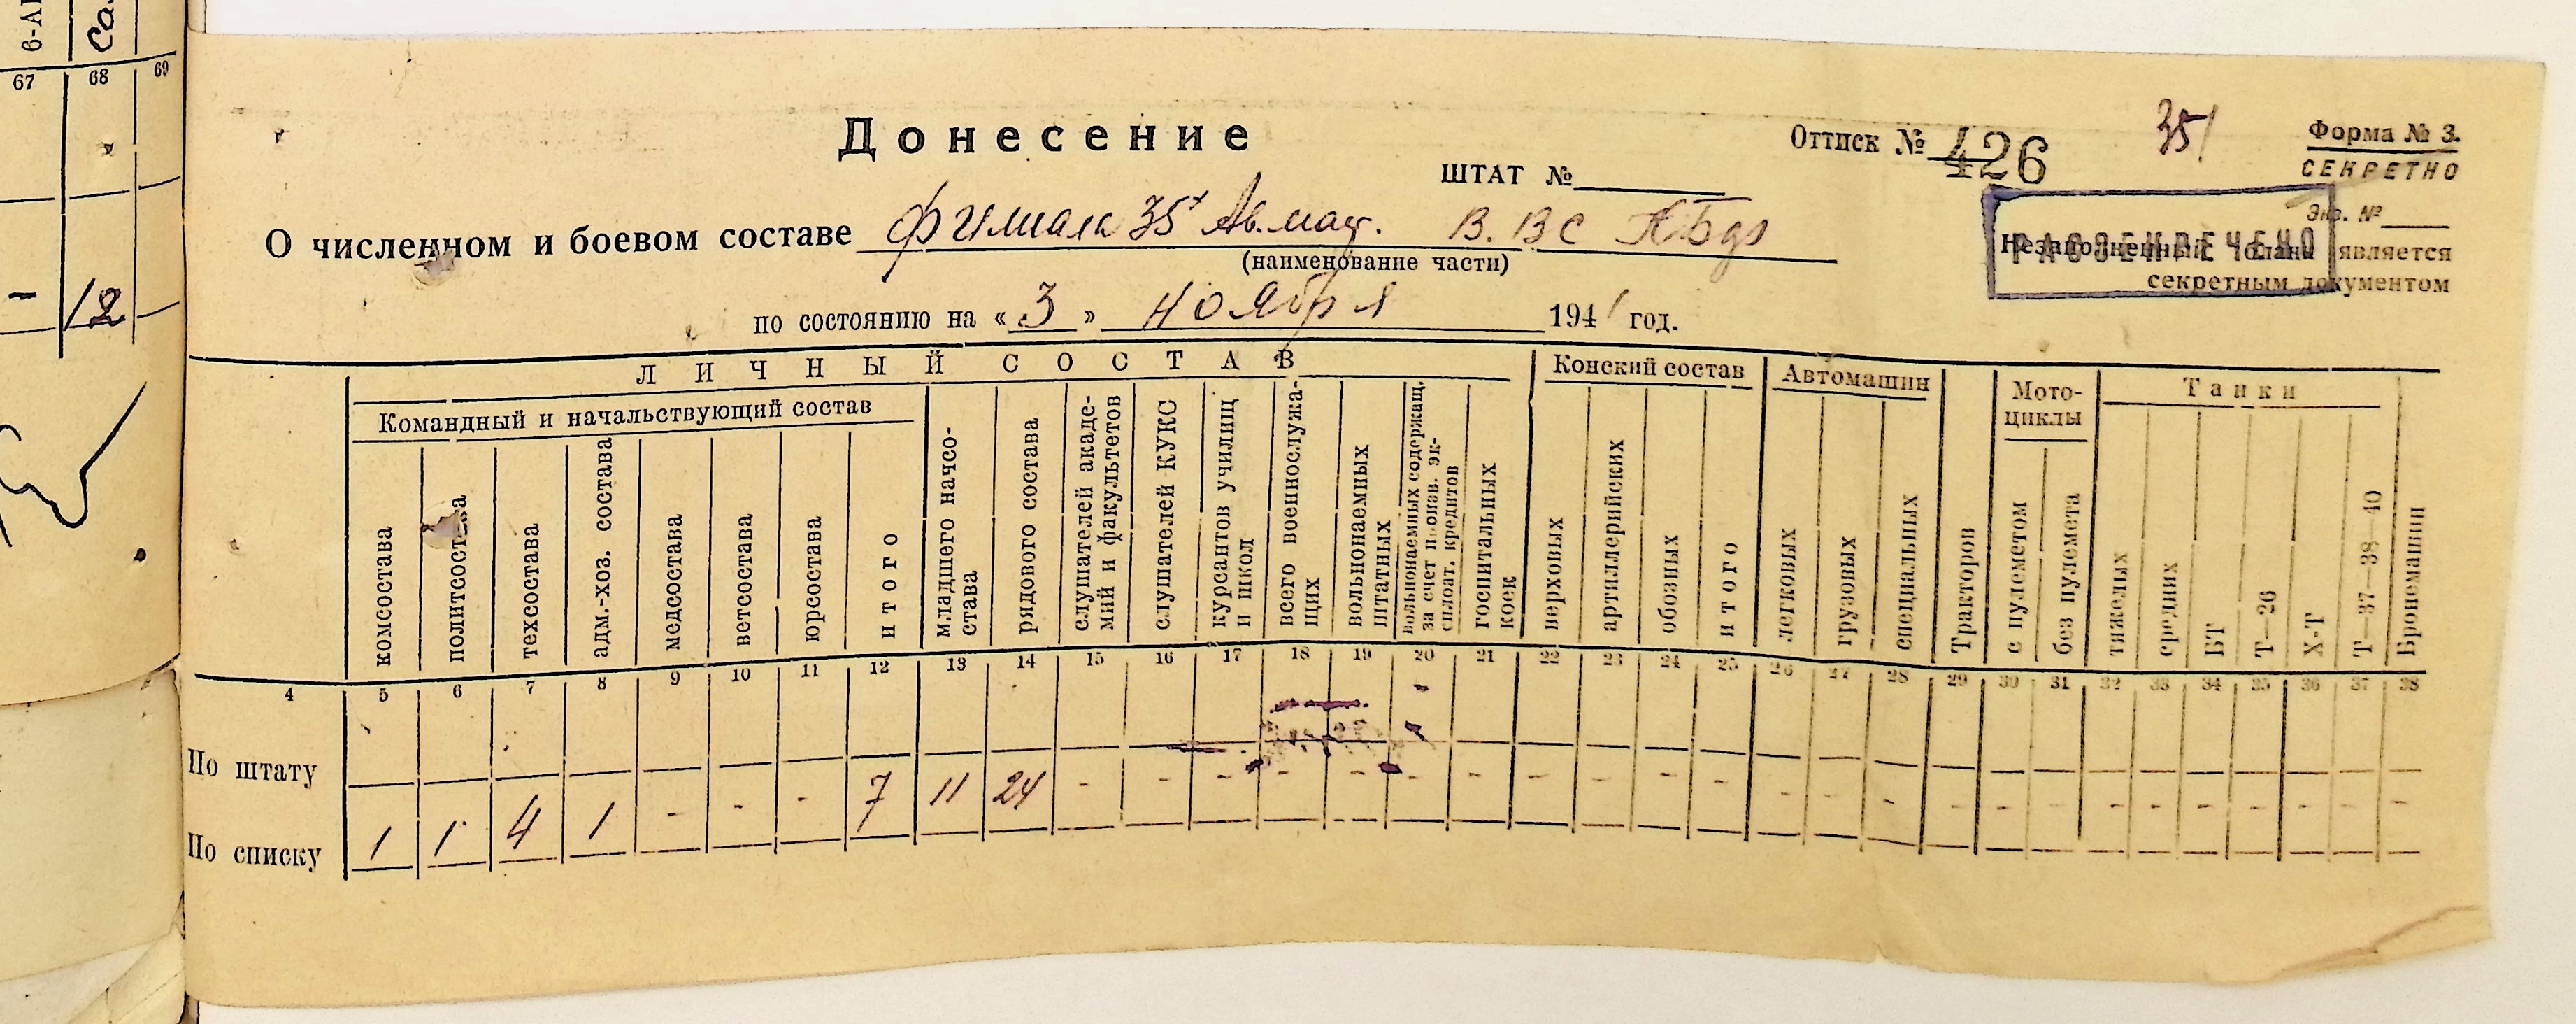 6-АП
со.
67 68 69
- 12
Донесение
Оттиск № 426
35/
Форма № 3.
СЕКРЕТНО
ШТАТ №
Экз. №
О численном и боевом составе филиала 35х Ав.маст. В.ВС КБф
(наименование части)
Незаполненный бланк является
секретным документом
РАССЕКРЕЧЕНО
по состоянию на «3» ноября 1941 год.
ЛИЧНЫЙ СОСТАВ
Конский состав
Автомашин
Мото-
циклы
Танки
Командный и начальствующий состав
комсостава
политсостава
техсостава
адм.-хоз. состава
медсостава
ветсостава
юрсостава
итого
младшего начсо-
става
рядового состава
слушателей акаде-
мий и факультетов
слушателей КУКС
курсантов училищ
и школ
всего военнослужа-
щих
вольнонаемных
штатных
вольнонаемных содержащ.
за счет произв. эк-
сплоат. кредитов
госпитальных
коек
верховых
артиллерийских
обозных
итого
легковых
грузовых
специальных
Тракторов
с пулеметом
без пулемета
тяжелых
средних
БТ
Т—26
Х-Т
Т—37—38—40
Бронемашин
4 5 6 7 8 9 10 11 12 13 14 15 16 17 18 19 20 21 22 23 24 25 26 27 28 29 30 31 32 33 34 35 36 37 38
По штату
По списку 1 1 4 1 - - - 7 11 24 - - - - - - - - - - - - - - - - - - - - - - - -